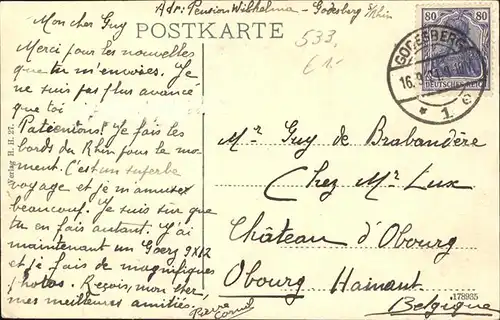 Adr: Pension Wilhelma - Godesberg s/Rhin
POSTKARTE
Mon cher Guy
Merci pour les nouvelles
que tu m'envoies. Je
ne suis pas plus avancé
que toi
Patientons! Je fais les
bords du Rhin pour le mo-
ment. C'est un superbe
voyage et je m'amuse
beaucoup. Je suis sur que
tu en fais autant. J'ai
maintenant un Goerz 9x12
et je fais de magnifiques
photos. Reçois, mon cher,
mes meilleures amitiés.
Pierre
Verlag H. H. 27.
533,
80 80
DEUTSCHES REICH
GODESBERG
16.9.
* 1 c
Mr Guy de Brabandère
Chez Mr Lux
Château d'Obourg
Obourg Hainaut
178935
Belgique